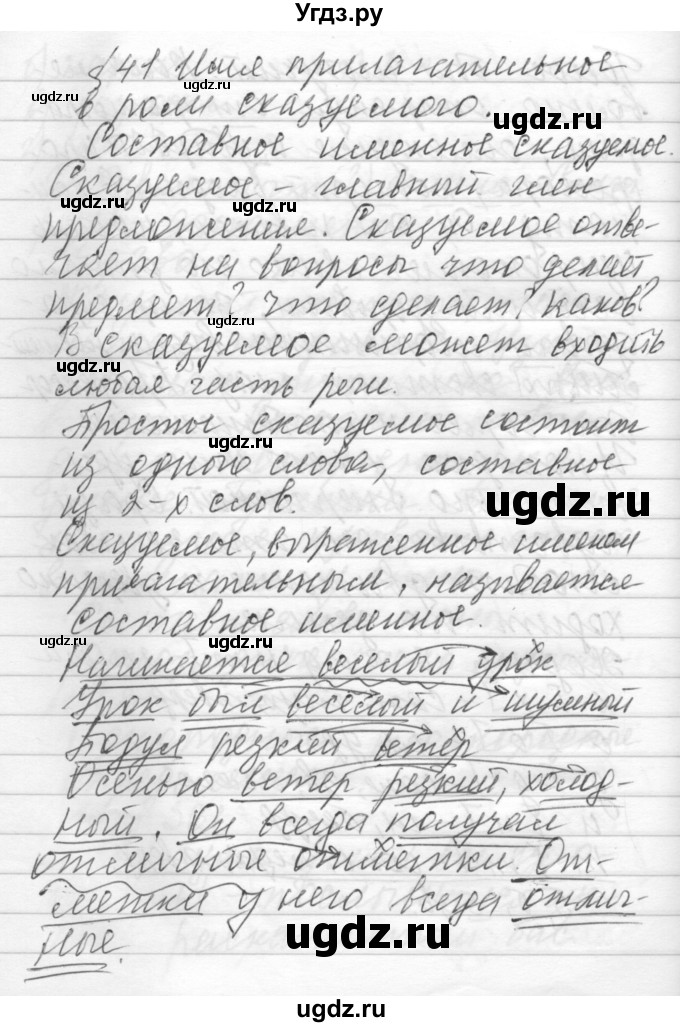 Угдз.ру
§ 41 Имя прилагательное
в роли сказуемого.
Составное именное сказуемое.
Сказуемое – главный член
предложения. Сказуемое отве-
чает на вопросы что делает
предмет? что сделает? каков?
В сказуемое может входить
любая часть речи.
Простое сказуемое состоит
из одного слова, составное
из 2-х слов.
Сказуемое, выраженное именем
прилагательным, называется
составное именное.
Начинается веселый урок
Урок был весёлый и шумный
Подул резкий ветер
Осенью ветер резкий, холод-
ный. Он всегда получал
отличные отметки. От-
метки у него всегда отлич-
ные.
ugdz.ru
ugdz.ru
ugdz.ru
ugdz.ru
ugdz.ru
ugdz.ru
ugdz.ru
ugdz.ru
ugdz.ru
ugdz.ru
ugdz.ru
ugdz.ru